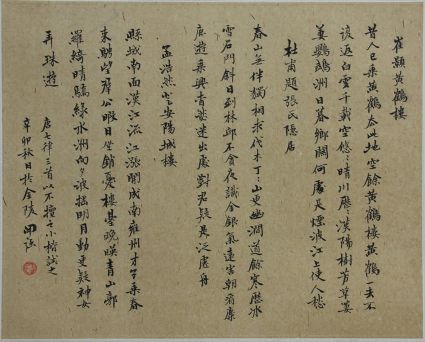 崔颢黄鹤楼
昔人已乘黄鹤去此地空餘黄鹤樓黄鹤一去不
復返白雲千載空悠悠晴川歷歷漢陽樹芳草萋
萋鸚鵡洲日暮鄉關何處是煙波江上使人愁
杜甫題張氏隱居
春山無伴獨相求伐木丁丁山更幽澗道餘寒歷冰
雪石門斜日到林邱不貪夜識金銀氣遠害朝看麋
鹿遊乘興杳然迷出處對君疑是泛虚舟
孟浩然登安陽城樓
縣城南面漢江流江漲開成南雍州才子乘春
來騁望羣公暇日坐銷憂樓臺晚映青山郭
羅綺晴驕綠水洲向夕波摇明月動更疑神女
弄珠遊
唐七律三首以不擅之小楷試之
辛卯秋日於金陵